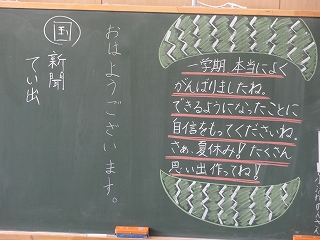 国
新聞
てい出
おはようございます。
一学期 本当によく
がんばりましたね。
できるようになったことに
自信をもってくださいね。
さぁ、夏休み!たくさん
思い出作ってね!